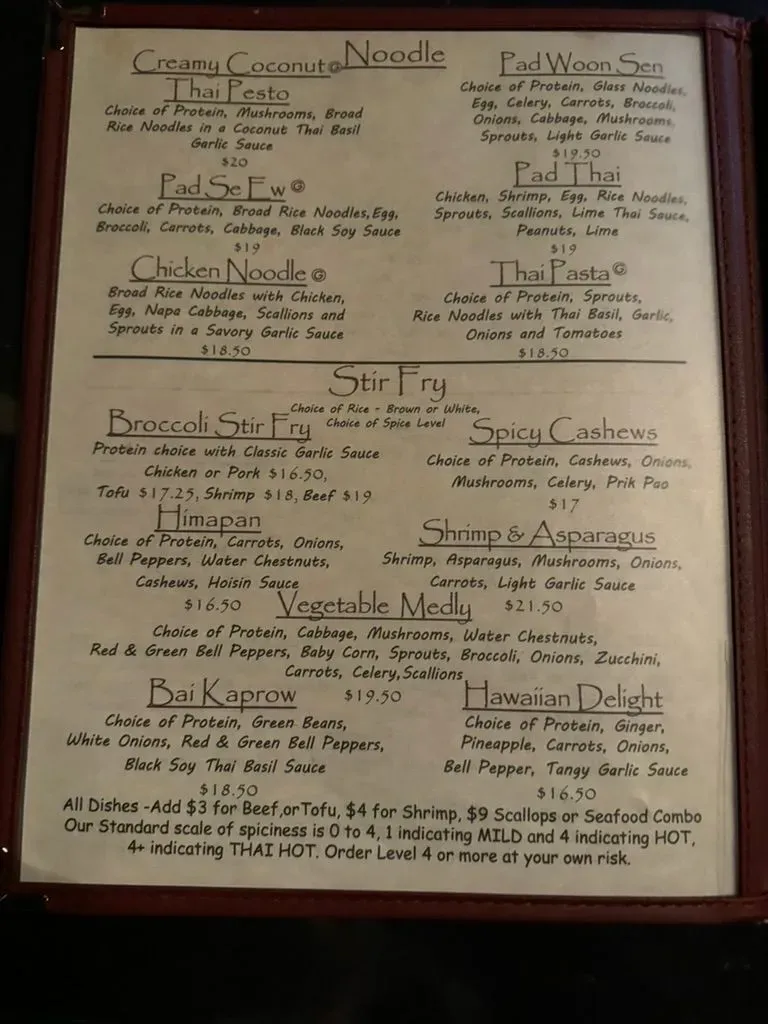 Noodle
Creamy Coconut G
Thai Pesto
Choice of Protein, Mushrooms, Broad
Rice Noodles in a Coconut Thai Basil
Garlic Sauce
$20
Pad Woon Sen
Choice of Protein, Glass Noodles,
Egg, Celery, Carrots, Broccoli,
Onions, Cabbage, Mushrooms,
Sprouts, Light Garlic Sauce
$19.50
Pad Se Ew G
Choice of Protein, Broad Rice Noodles, Egg,
Broccoli, Carrots, Cabbage, Black Soy Sauce
$19
Pad Thai
Chicken, Shrimp, Egg, Rice Noodles,
Sprouts, Scallions, Lime Thai Sauce,
Peanuts, Lime
$19
Chicken Noodle G
Broad Rice Noodles with Chicken,
Egg, Napa Cabbage, Scallions and
Sprouts in a Savory Garlic Sauce
$18.50
Thai Pasta G
Choice of Protein, Sprouts,
Rice Noodles with Thai Basil, Garlic,
Onions and Tomatoes
$18.50
Stir Fry
Choice of Rice - Brown or White,
Choice of Spice Level
Broccoli Stir Fry
Protein choice with Classic Garlic Sauce
Chicken or Pork $16.50,
Tofu $17.25, Shrimp $18, Beef $19
Spicy Cashews
Choice of Protein, Cashews, Onions,
Mushrooms, Celery, Prik Pao
$17
Himapan
Choice of Protein, Carrots, Onions,
Bell Peppers, Water Chestnuts,
Cashews, Hoisin Sauce
$16.50
Shrimp & Asparagus
Shrimp, Asparagus, Mushrooms, Onions,
Carrots, Light Garlic Sauce
$21.50
Vegetable Medly
Choice of Protein, Cabbage, Mushrooms, Water Chestnuts,
Red & Green Bell Peppers, Baby Corn, Sprouts, Broccoli, Onions, Zucchini,
Carrots, Celery, Scallions
$19.50
Bai Kaprow
Choice of Protein, Green Beans,
White Onions, Red & Green Bell Peppers,
Black Soy Thai Basil Sauce
$18.50
Hawaiian Delight
Choice of Protein, Ginger,
Pineapple, Carrots, Onions,
Bell Pepper, Tangy Garlic Sauce
$16.50
All Dishes -Add $3 for Beef,orTofu, $4 for Shrimp, $9 Scallops or Seafood Combo
Our Standard scale of spiciness is 0 to 4, 1 indicating MILD and 4 indicating HOT,
4+ indicating THAI HOT. Order Level 4 or more at your own risk.